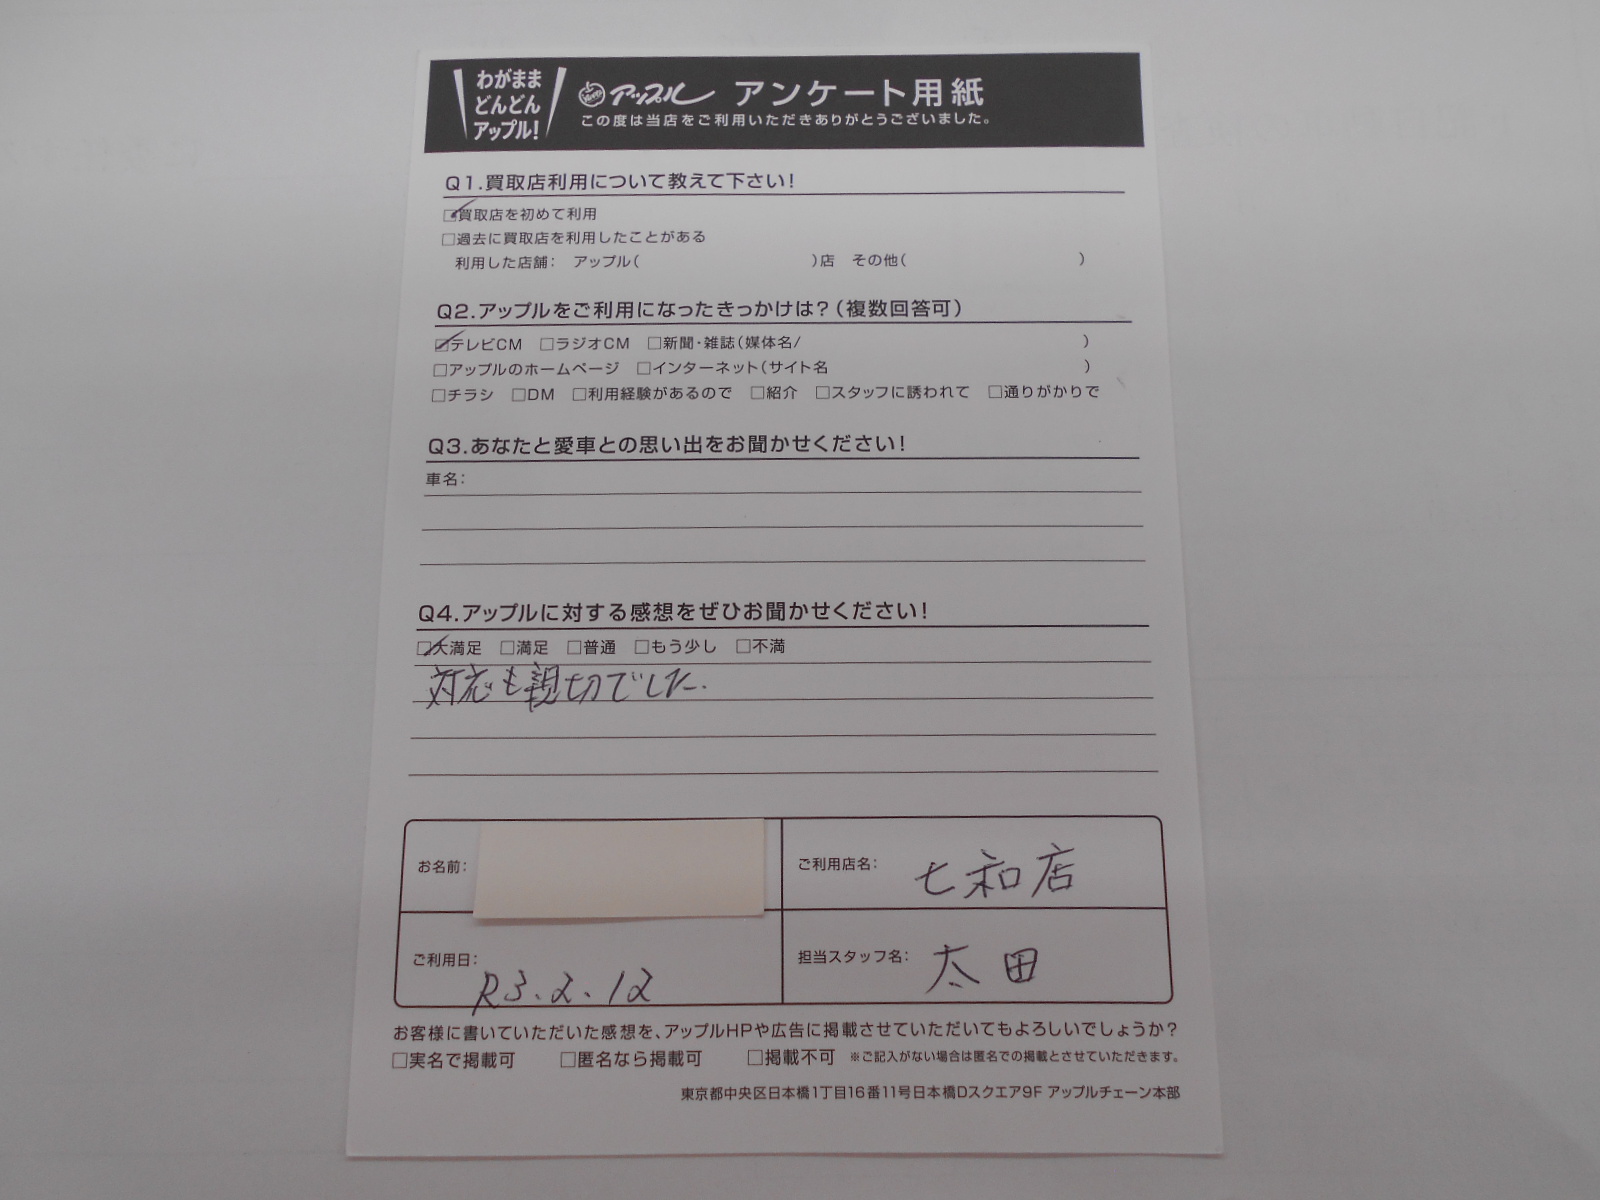 わがまま
どんどん
アップル!
アップル アンケート用紙
この度は当店をご利用いただきありがとうございました。
Q1.買取店利用について教えて下さい!
☑買取店を初めて利用
□過去に買取店を利用したことがある
利用した店舗: アップル( )店 その他( )
Q2.アップルをご利用になったきっかけは?(複数回答可)
☑テレビCM □ラジオCM □新聞・雑誌(媒体名/ )
□アップルのホームページ □インターネット(サイト名 )
□チラシ □DM □利用経験があるので □紹介 □スタッフに誘われて □通りがかりで
Q3.あなたと愛車との思い出をお聞かせください!
車名:
Q4.アップルに対する感想をぜひお聞かせください!
☑大満足 □満足 □普通 □もう少し □不満
対応も親切でした.
お名前:
ご利用店名: 七和店
ご利用日: R3.2.12
担当スタッフ名: 太田
お客様に書いていただいた感想を、アップルHPや広告に掲載させていただいてもよろしいでしょうか?
□実名で掲載可 □匿名なら掲載可 □掲載不可 ※ご記入がない場合は匿名での掲載とさせていただきます。
東京都中央区日本橋1丁目16番11号日本橋Dスクエア9F アップルチェーン本部